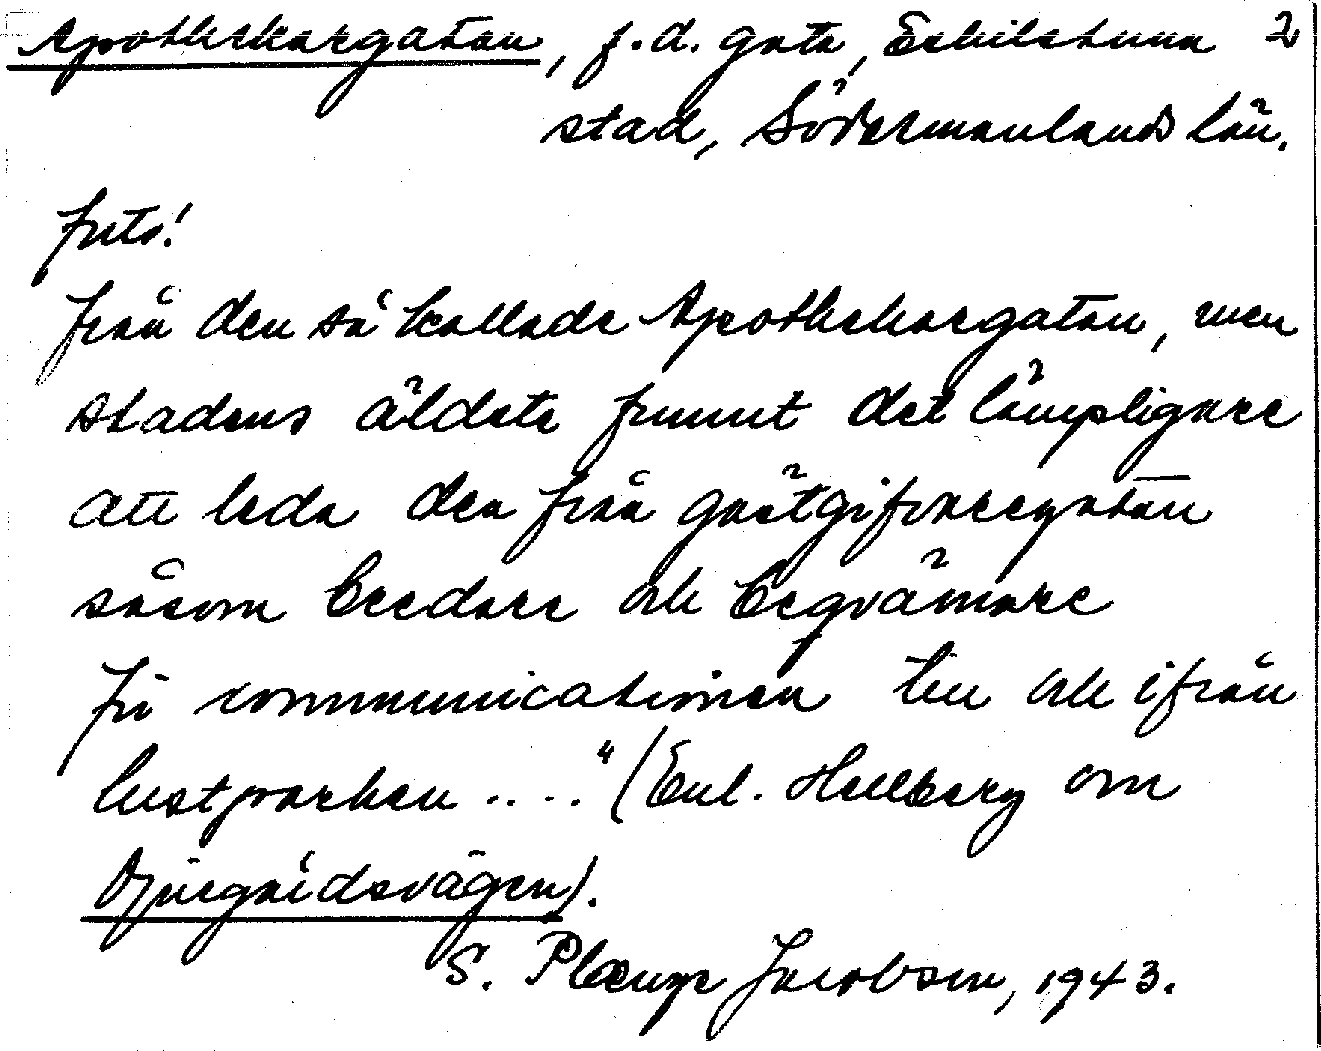 Apothekargatan, f.d. gata, Eskilstuna 2
stad, Södermanlands län.
forts.!
från den så kallade Apothekargatan, men
stadens äldste funnit det lämpligare
att leda den från gästgifvaregatan
såsom bredare och beqvämare
för communicationen till och ifrån
lustparken ...." (Enl. Hellberg om
Djurgårdsvägen).
S. Plænge Jacobson, 1943.